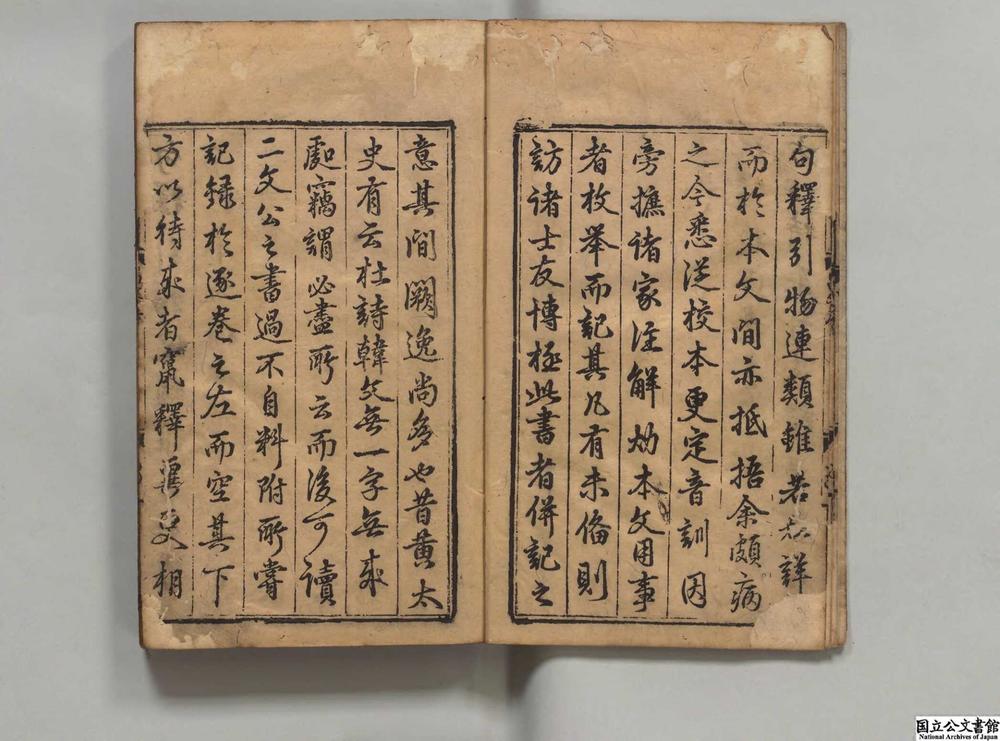 句釋引物連類雖若加詳
而於本文間亦抵捂余頗病
之今悉從校本更定音訓因
旁摭諸家注解幼本文用事
者枚舉而記其凡有未俻則
訪諸士友博極此書者併記之
意其間闕逸尚多也昔黄太
史有云杜詩韓文無一字無來
處竊謂必盡所云而後可讀
二文公之書過不自料附所嘗
記録於逐卷之左而空其下
方以待來者竄釋
更相
国立公文書館
National Archives of Japan